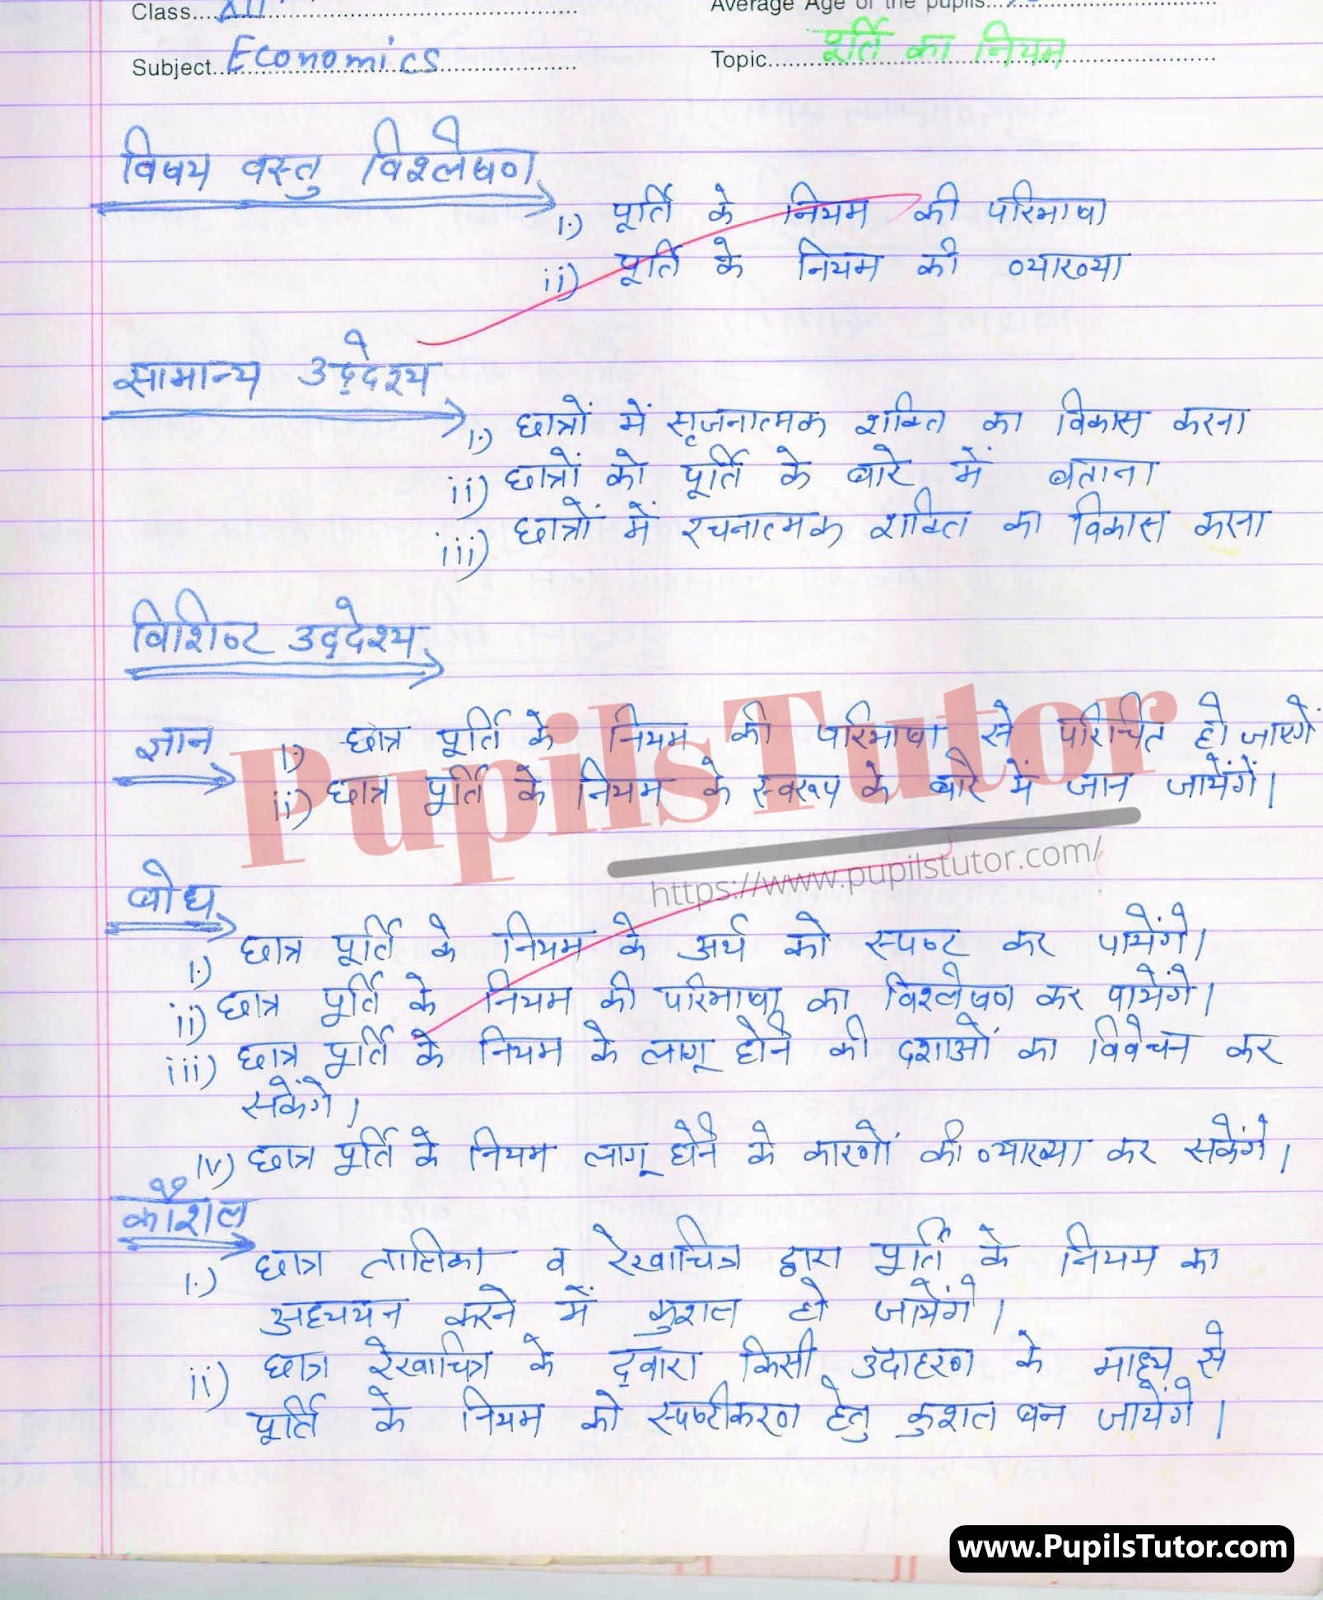 Class.... XII
Average Age of the pupils...
Subject.. Economics
Topic.... पूर्ति का नियम
विषय वस्तु विश्लेषण
i.) पूर्ति के नियम की परिभाषा
ii) पूर्ति के नियम की व्याख्या
सामान्य उद्देश्य
i.) छात्रों में सृजनात्मक शक्ति का विकास करना
ii) छात्रों को पूर्ति के बारे में बताना
iii) छात्रों में रचनात्मक शक्ति का विकास करना
विशिष्ट उद्देश्य
ज्ञान i.) छात्र पूर्ति के नियम की परिभाषा से परिचित हो जाएगें
ii) छात्र पूर्ति के नियम के स्वरूप के बारे में जान जायेंगें।
PupilsTutor
https://www.pupilstutor.com/
बोध
i.) छात्र पूर्ति के नियम के अर्थ को स्पष्ट कर पायेंगे।
ii) छात्र पूर्ति के नियम की परिभाषा का विश्लेषण कर पायेंगे।
iii) छात्र पूर्ति के नियम के लागू होने की दशाओं का विवेचन कर
सकेंगे।
iv) छात्र पूर्ति के नियम लागू होने के कारणों की व्याख्या कर सकेंगे।
कौशल
i.) छात्र तालिका व रेखाचित्र द्वारा पूर्ति के नियम का
अध्ययन करने में कुशल हो जायेंगे।
ii) छात्र रेखाचित्र के द्वारा किसी उदाहरण के माध्य से
पूर्ति के नियम को स्पष्टीकरण हेतु कुशल बन जायेंगे।
www.PupilsTutor.com